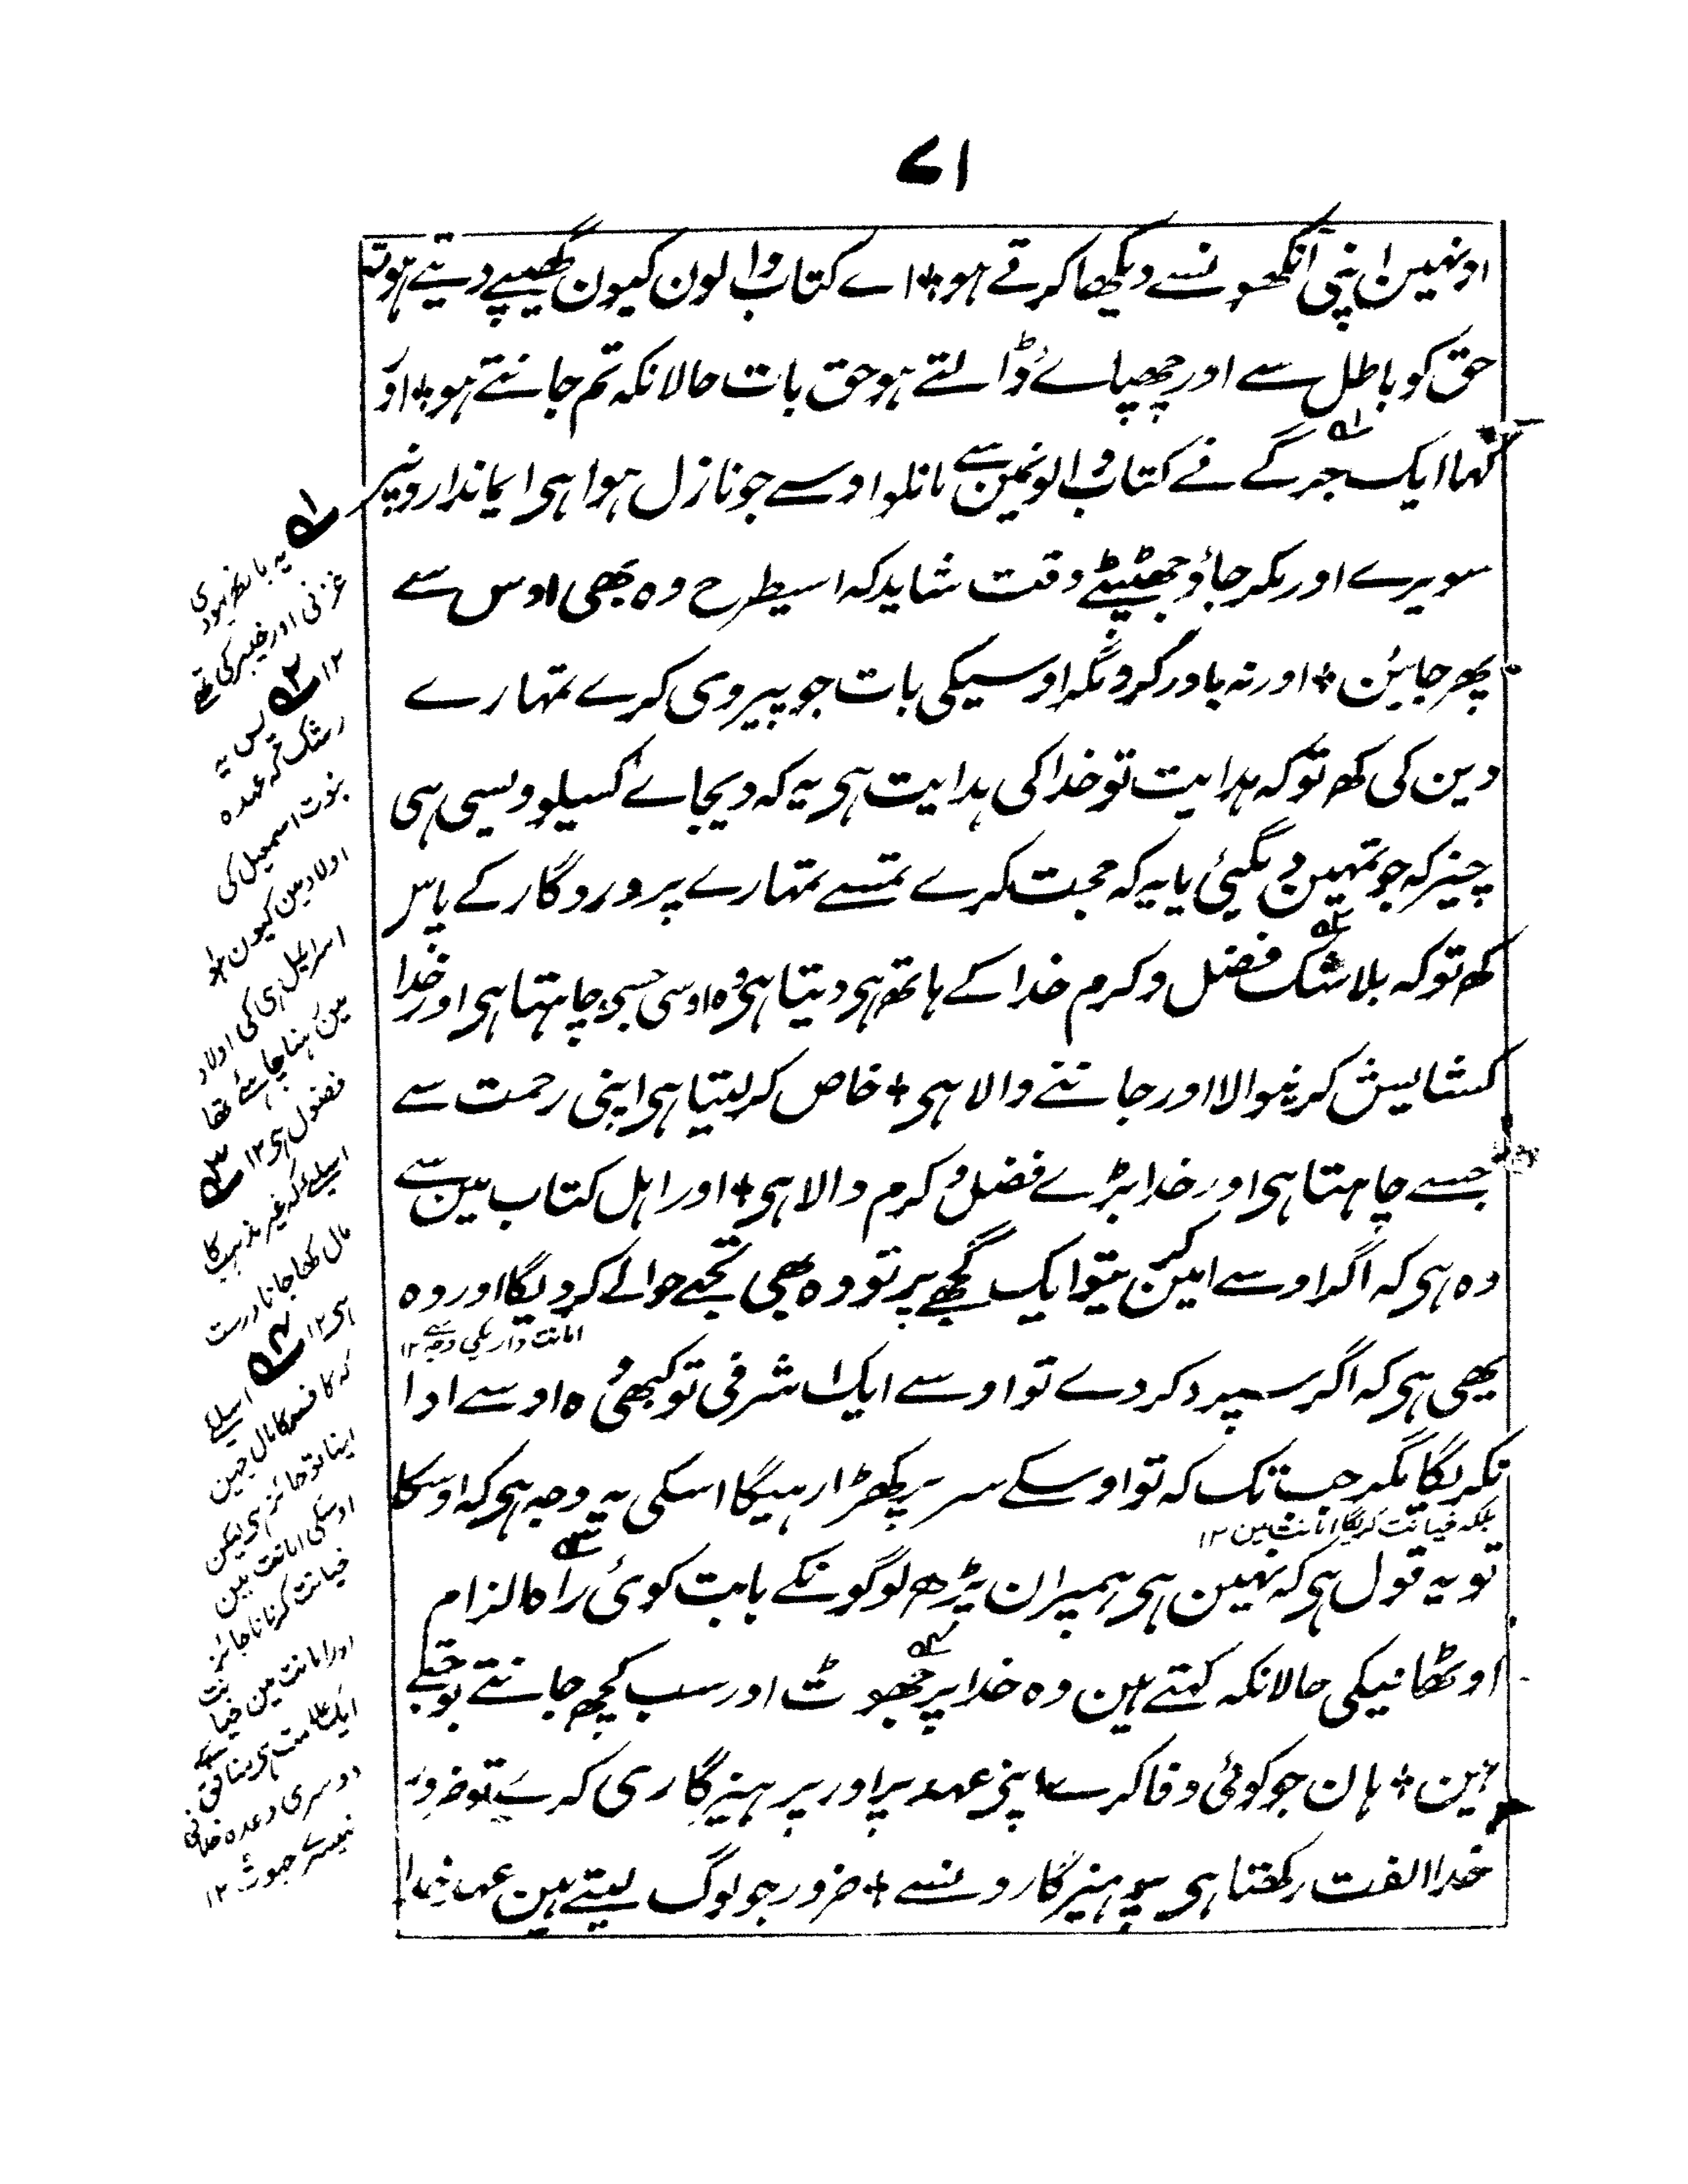 ۷۱
اونہین اپنی آنکھونسے دیکھا کرتے ہو + اے کتاب والون کیون گھیپے دیتے ہو تم
حق کو باطل سے اور چھپائے ڈالتے ہو حق بات حالانکہ تم جانتے ہو + اور
کہا ایک جرگے نے کتاب والونمین سے مانلو اوسے جو نازل ہوا ہی ایماندارونپر
سویرے اور مکر جاؤ جھٹپٹے وقت شاید کہ اسیطرح وہ بھی اوس سے
پھر جایئن + اور نہ باور کرو مگر اوسیکی بات جو پیروی کرے تمہارے
دین کی کھ تو کہ ہدایت تو خدا کی ہدایت ہی یہ کہ دیجائے کسیکو ویسی ہی
چیز کہ جو تمہین دیگیئ یا یہ کہ حجت کرے تمسے تمہارے پروردگار کے پاس
کھ تو کہ بلا شک فضل و کرم خدا کے ہاتھ ہی دیتا ہی وہ اوسی جسی چاہتا ہی اور خدا
کشایش کرینوالا اور جاننے والا ہی + خاص کر لیتا ہی اپنی رحمت سے
جسے چاہتا ہی اور خدا بڑے فضل و کرم والا ہی + اور اہل کتاب مین سے
وہ ہی کہ اگر اوسے امین کر یتو ایک گنجھے پر تو وہ بھی تجھے حوالے کر دیگا اور وہ
امانت داریکی وجہ سے ۱۲
بھی ہی کہ اگر سپرد کر دے تو اوسے ایک اشرفی تو کبھی وہ اوسے ادا
نکریگا مگر جب تک کہ تو اوسکے سر پر کھڑا رہیگا اسکی یہ وجہ ہی کہ اوسکا
بلکہ خیانت کریگا امانت مین ۱۲
تو یہ قول ہی کہ نہین ہی ہمپر ان پڑھ لوگونکے بابت کوئی راہ الزام
اوٹھانیکی حالانکہ کہتے ہین وہ خدا پر جھوٹ اور سب کچھ جانتے بوجھتے
ہین + ہان جو کوئی وفا کرے اپنی عہد پر اور پرہیزگاری کرے تو ضرور
خدا الفت رکھتا ہی پرہیزگارونسے + ضرور جو لوگ لیتے ہین عہد خدا
۱ یہ بارہ یہودی
عرنی اور خیبر کی تھے
۱۲ ۲ پس یہ
رشک کہ عہدہ
نبوت اسمعیل کی
اولاد مین کیون
اسرائیل ہی کی اولاد
مین رہنا چاہئے تھا
فضول ہی ۱۲ ۳
اسلئے کہ غیر مذہب کا
مال کھا جانا درست
ہی ۱۲ ۴ اسلئے
کہ کافر کا مال چھین
لینا تو جائز ہی لیکن
اوسکی امانت مین
خیانت کرنا ناجائز
اور امانت مین خیانت
ایک علامت ہی منافق کے
دوسری وعدہ خلافی
تیسرے جھوٹ ۱۲